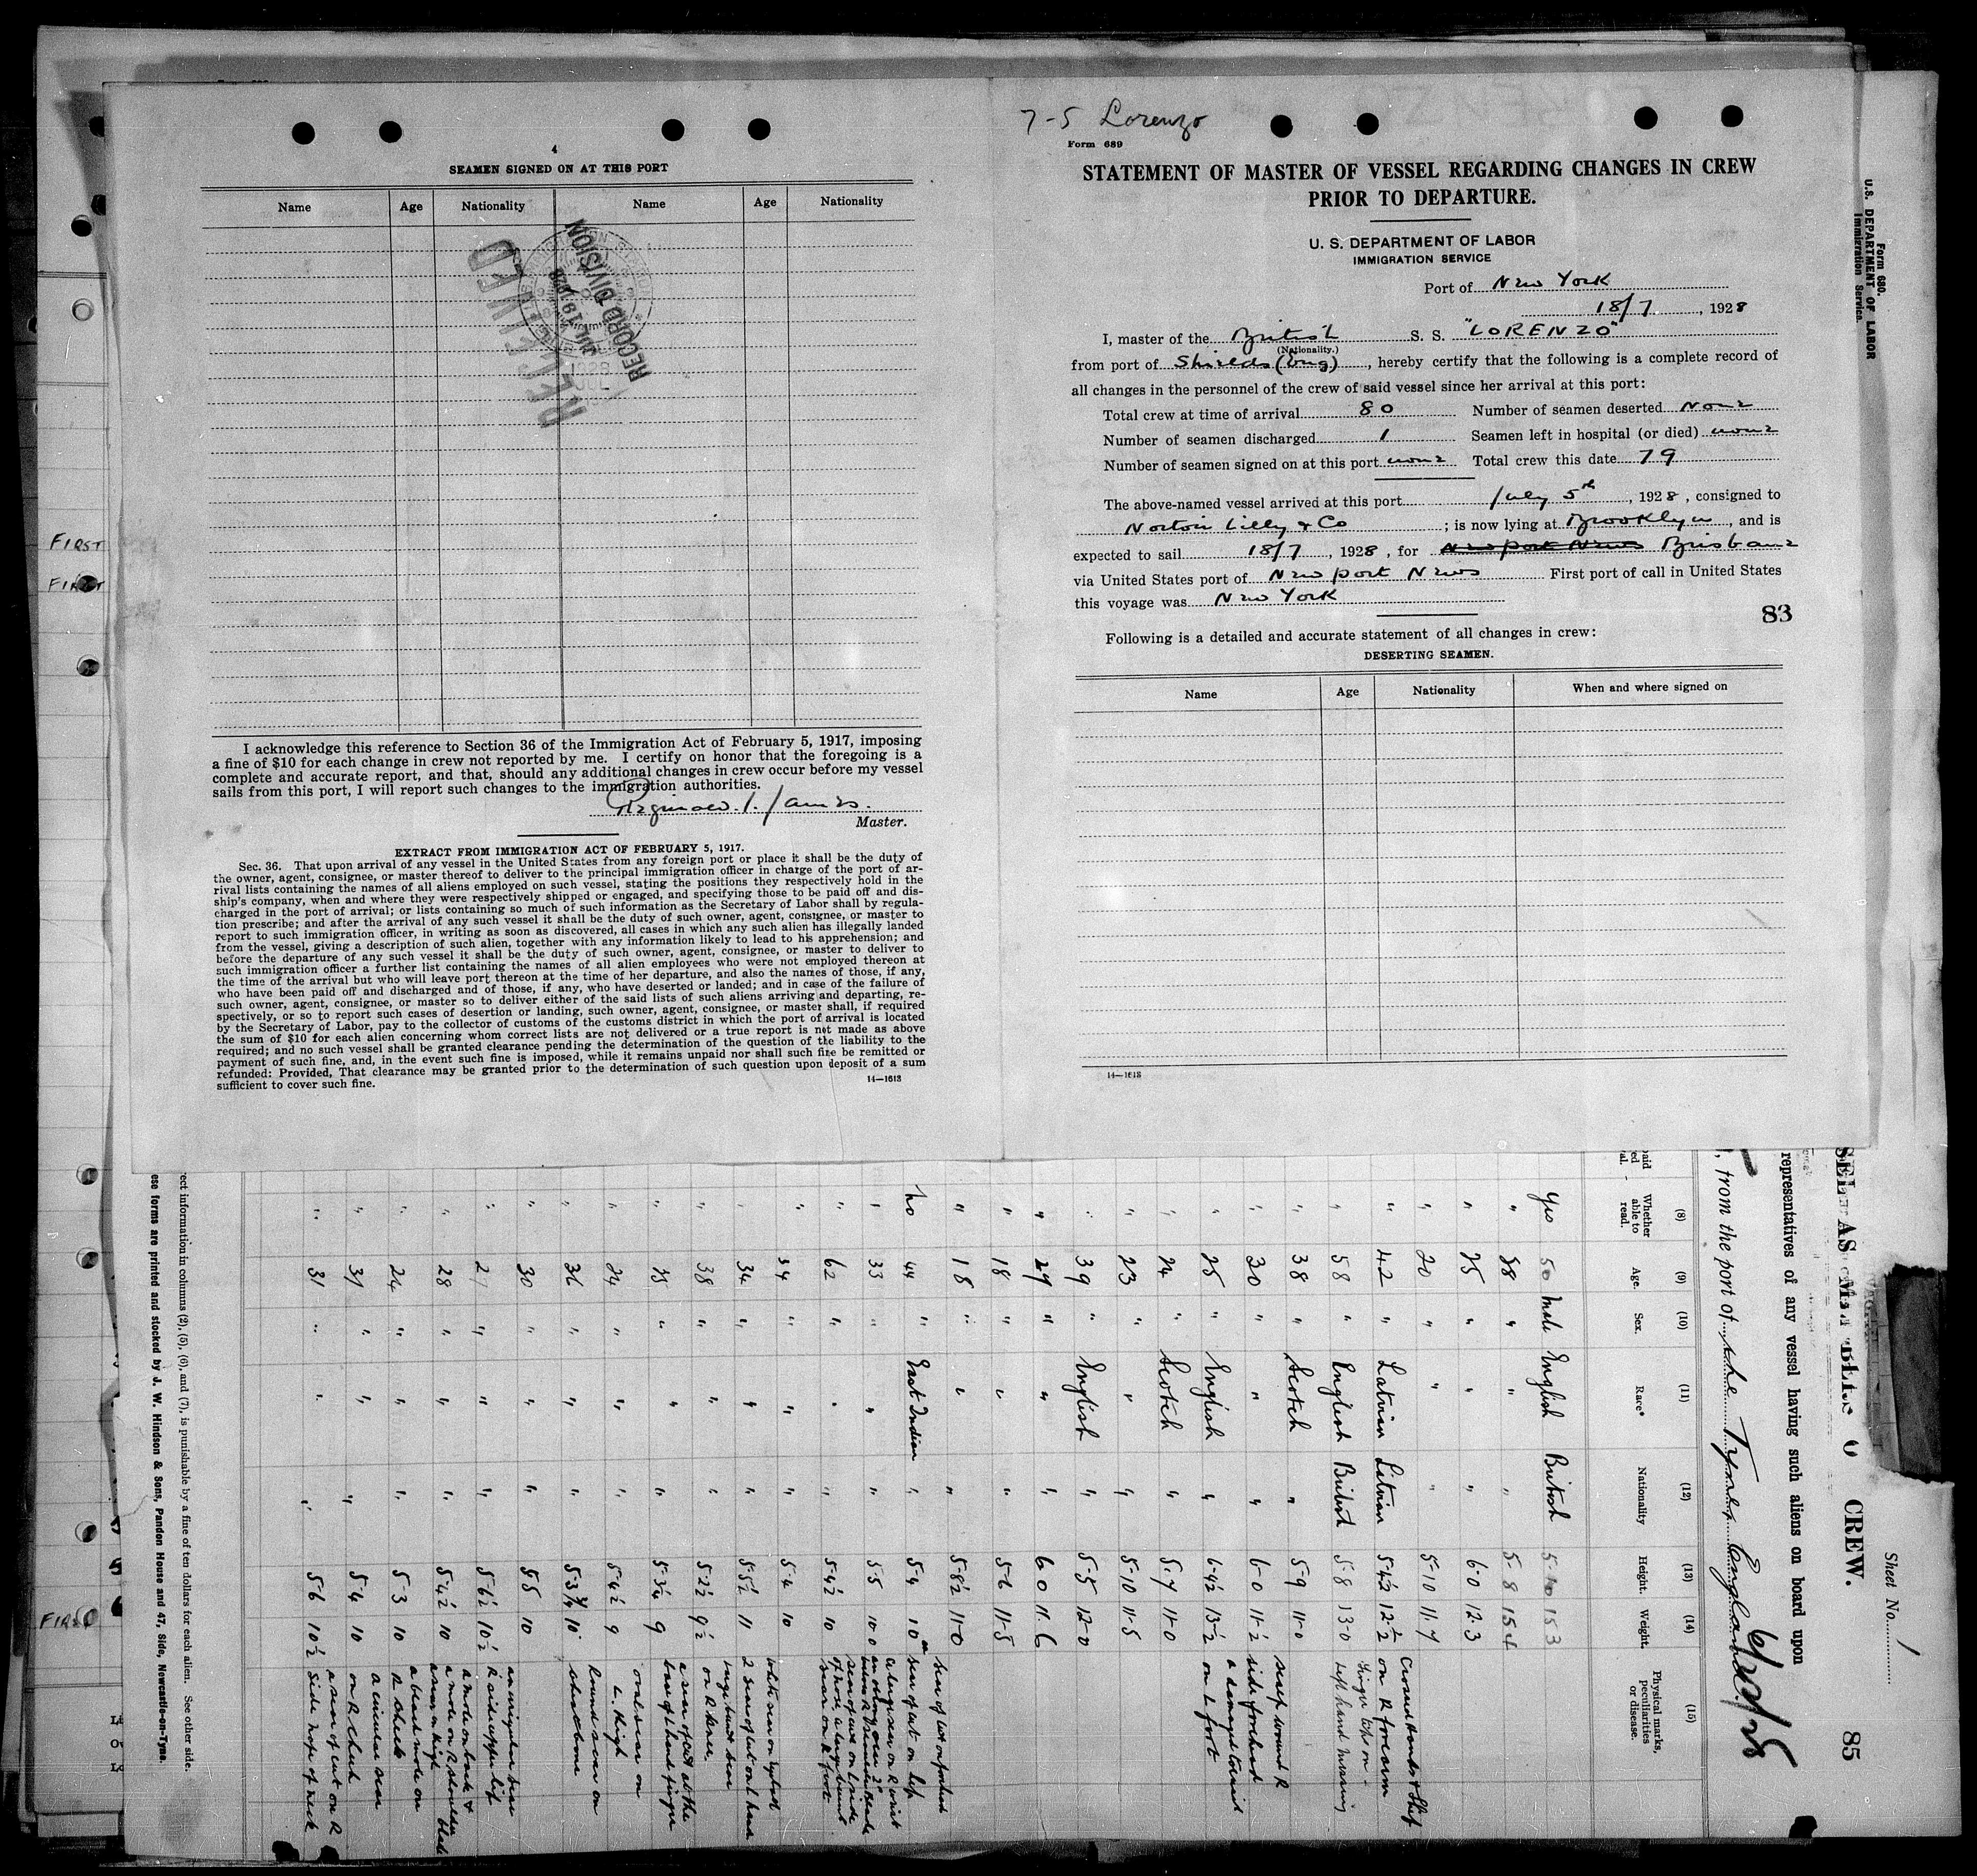 4
SEAMEN SIGNED ON AT THIS PORT
Name Age Nationality Name Age Nationality
RECEIVED
JUL 19 1928
RECORD DIVISION
I acknowledge this reference to Section 36 of the Immigration Act of February 5, 1917, imposing
a fine of $10 for each change in crew not reported by me. I certify on honor that the foregoing is a
complete and accurate report, and that, should any additional changes in crew occur before my vessel
sails from this port, I will report such changes to the immigration authorities.
Reginald. I. James.
Master.
EXTRACT FROM IMMIGRATION ACT OF FEBRUARY 5, 1917.
Sec. 36. That upon arrival of any vessel in the United States from any foreign port or place it shall be the duty of
the owner, agent, consignee, or master thereof to deliver to the principal immigration officer in charge of the port of ar-
rival lists containing the names of all aliens employed on such vessel, stating the positions they respectively hold in the
ship's company, when and where they were respectively shipped or engaged, and specifying those to be paid off and dis-
charged in the port of arrival; or lists containing so much of such information as the Secretary of Labor shall by regula-
tion prescribe; and after the arrival of any such vessel it shall be the duty of such owner, agent, consignee, or master to
report to such immigration officer, in writing as soon as discovered, all cases in which any such alien has illegally landed
from the vessel, giving a description of such alien, together with any information likely to lead to his apprehension; and
before the departure of any such vessel it shall be the duty of such owner, agent, consignee, or master to deliver to
such immigration officer a further list containing the names of all alien employees who were not employed thereon at
the time of the arrival but who will leave port thereon at the time of her departure, and also the names of those, if any,
who have been paid off and discharged and of those, if any, who have deserted or landed; and in case of the failure of
such owner, agent, consignee, or master so to deliver either of the said lists of such aliens arriving and departing, re-
spectively, or so to report such cases of desertion or landing, such owner, agent, consignee, or master shall, if required
by the Secretary of Labor, pay to the collector of customs of the customs district in which the port of arrival is located
the sum of $10 for each alien concerning whom correct lists are not delivered or a true report is not made as above
required; and no such vessel shall be granted clearance pending the determination of the question of the liability to the
payment of such fine, and, in the event such fine is imposed, while it remains unpaid nor shall such fine be remitted or
refunded: Provided, That clearance may be granted prior to the determination of such question upon deposit of a sum
sufficient to cover such fine.
14—1613
7-5 Lorenzo
Form 689
STATEMENT OF MASTER OF VESSEL REGARDING CHANGES IN CREW
PRIOR TO DEPARTURE.
U. S. DEPARTMENT OF LABOR
IMMIGRATION SERVICE
Port of New York
18/7, 1928
I, master of the British S. S. "LORENZO"
(Nationality.)
from port of Shields (Eng), hereby certify that the following is a complete record of
all changes in the personnel of the crew of said vessel since her arrival at this port:
Total crew at time of arrival 80 Number of seamen deserted None
Number of seamen discharged 1 Seamen left in hospital (or died) none
Number of seamen signed on at this port none Total crew this date 79
The above-named vessel arrived at this port July 5th, 1928, consigned to
Norton Lilly & Co; is now lying at Brooklyn, and is
expected to sail 18/7, 1928, for Newport News Brisbane
via United States port of Newport News First port of call in United States
this voyage was New York
83
Following is a detailed and accurate statement of all changes in crew:
DESERTING SEAMEN.
Name Age Nationality When and where signed on
14—1613
Form 680.
U.S. DEPARTMENT OF LABOR
Immigration Service.
FIRST
FIRST
FIRST
Sheet No. 1
85
CREW.
representatives of any vessel having such aliens on board upon
, from the port of the Tyne, England
(8) (9) (10) (11) (12) (13) (14) (15)
Whether able to read. Age. Sex. Race* Nationality Height. Weight. Physical marks, peculiarities or disease.
yes 50 male English British 5-10 153
" 38 " " " 5-8 154
" 25 " " " 6-0 12.3
" 20 " " " 5-10 11-7
" 42 " Latvian Latvian
" 58 " English British 5-8 13-0
" 38 " Scotch " 5-9 11-0 scalp wound R
" 30 " " " 6-0 11-2 side forehead
" 25 " English " 6-4½ 13-2 on L foot
" 24 " Scotch " 5-7 11-0
" 23 " " " 5-10 11-5
" 39 " English " 5-5 12-0
" 29 " " " 6 0 11.6
" 18 " " " 5-6 11-5
" 18 " " " 5-8½ 11-0 scar of cut on forehead
no 44 " East Indian " 5-4 10 scar of cut on lip
" 33 " " " 5-5 10-0
" 62 " " " 5-4½ 10
" 34 " " " 5-4 10
" 34 " " " 5-5½ 11 2 scar of cut on L hand
" 38 " " " 5-2½ 9½ large burnt scar on R knee
" 35 " " " 5-3¼ 9
" 24 " " " 5-4½ 9 oval scar on L. thigh
" 36 " " " 5-3¾ 10 Round scar on
" 30 " " " 5-5 10
" 27 " " " 5-6½ 10½ R side upper lip
" 28 " " " 5-4½ 10
" 24 " " " 5-3 10 a bead mole on R cheek
" 31 " " " 5-4 10 a circular scar on R cheek
" 31 " " " 5-6 10½ a scar of cut on R side nape of neck
rect information in columns (2), (5), (6), and (7), is punishable by a fine of ten dollars for each alien. See other side.
ese forms are printed and stocked by J. W. Hindson & Sons, Pandon House and 47, Side, Newcastle-on-Tyne.